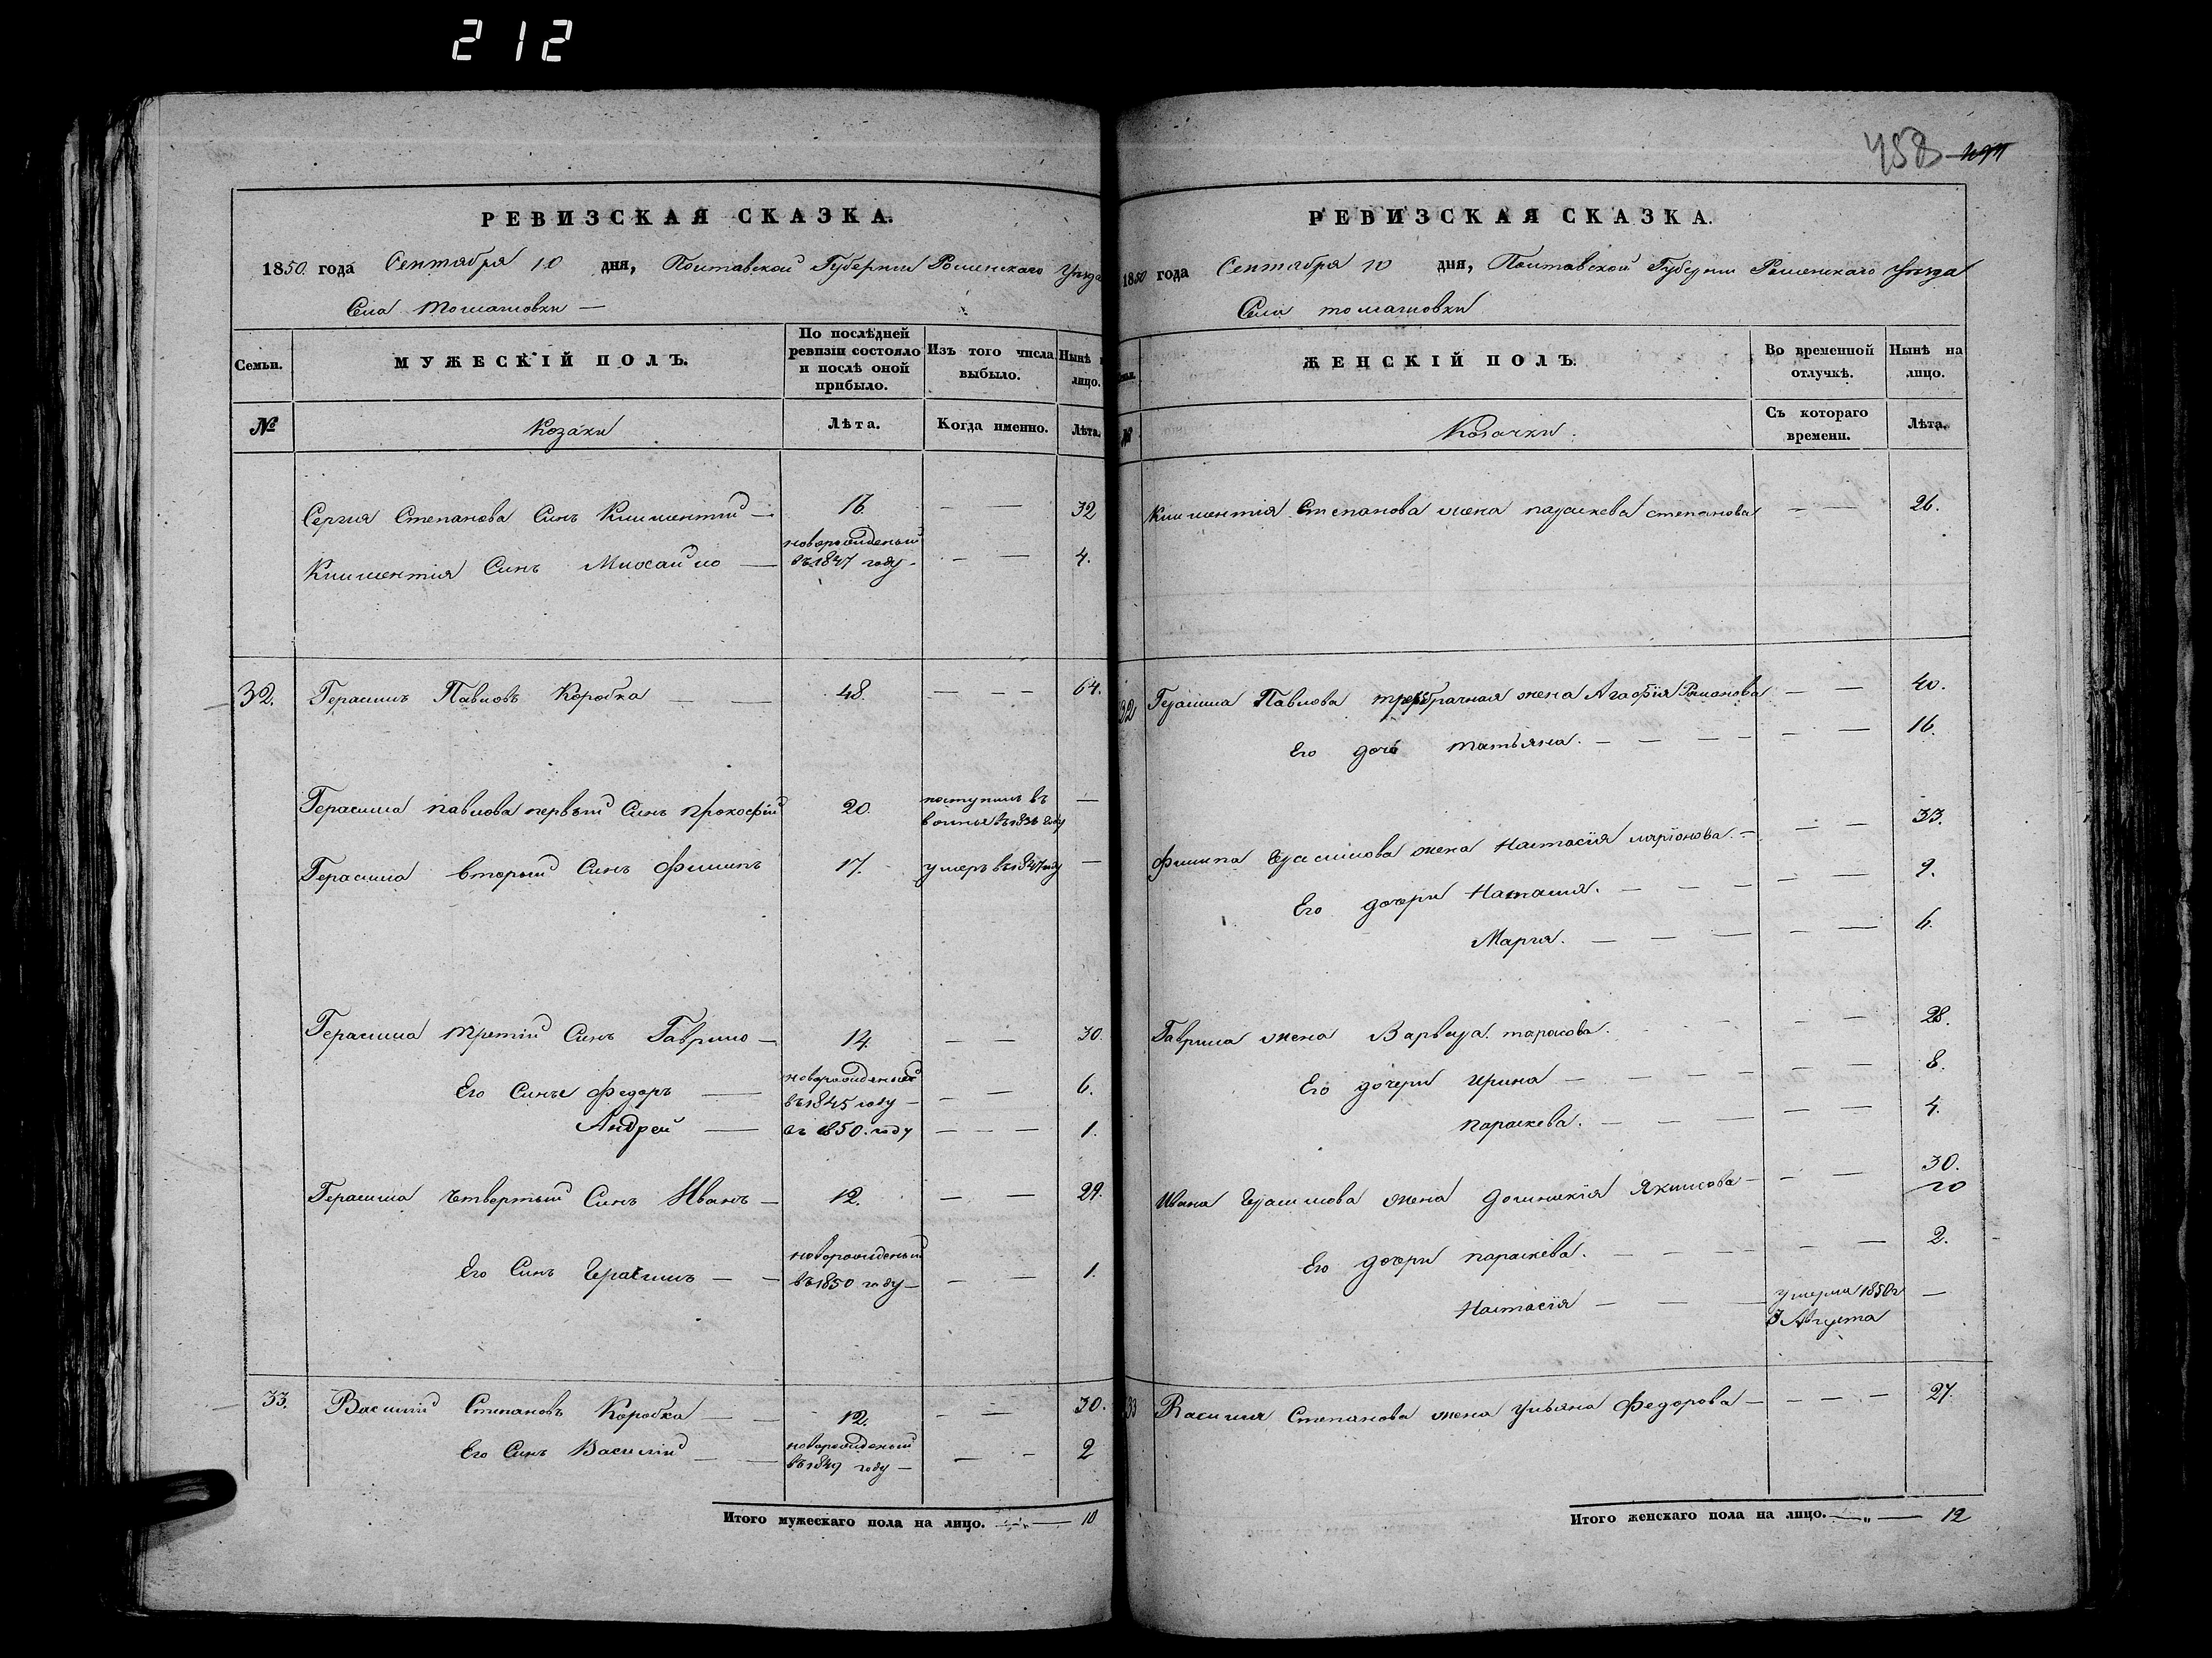 212
458
РЕВИЗСКАЯ СКАЗКА.
1850 года Сентября 10 дня, Полтавской Губернии Роменскаго Уезда
Села Томашовки —
Семьи.
МУЖЕСКІЙ ПОЛЪ.
По послѣдней ревизіи состояло и послѣ оной прибыло.
Изъ того числа выбыло.
Нынѣ лицо.
№
Козаки
Лѣта.
Когда именно.
Лѣта.
Сергия Степанова Синъ Климентий — 16. — — 32
Климентія Синъ Михайло — новорожденый въ 1847 году — — — 4.
32. Герасимъ Павловъ Коробка — — 48. — — — 64.
Герасима павлова первый Синъ прокофій 20. поступилъ въ —
Герасима вторый Синъ Филипъ 17. умеръ въ 1847 году —
Герасима Третій Синъ Гаврило — 14. — — 30.
Его Сины Федоръ — новорожденый въ 1845 году — — — 6.
Андрей — въ 1850. году — — — 1.
Герасима Четвертый Синъ Иванъ — 12. — — 29.
Его Синъ Герасимъ — — новорожденый въ 1850 году — — — 1.
33. Василий Степановъ Коробка — — 12. — — 30.
Его Синъ Василій — — новорожденый въ 1849 году — — — 2
Итого мужескаго пола на лицо. — „ — 10
РЕВИЗСКАЯ СКАЗКА.
1850 года Сентября 10 дня, Полтавской Губернии Роменскаго Уезда
Села томашовки
№
ЖЕНСКІЙ ПОЛЪ.
Во временной отлучкѣ.
Нынѣ на лицо.
Козачки.
Съ котораго времени.
Лѣта.
Климентія Степанова жена параскева степанова — — 26.
32 Герасима Павлова жена Агафія Романова — — 40.
Его дочь татьяна. — — — — — — 16.
Филипа Герасимова жена Настасія ларіонова. — — — 33.
Его дочери Наталия. — — — — — 9.
Мария. — — — — — 6.
Гаврила жена Варвара тарасова. — — 28.
Его дочери Ирина — — — — — — 8.
параскева. — — — — — 4.
Ивана Герасимова жена Домникія Якимова — — — 30.
10
Его дочери параскева. — — — — — 2.
Настасія — — — умерла 1850 г 3 Августа —
33 Василия Степанова жена Ульяна Федорова — — — 27.
Итого женскаго пола на лицо. — „ — 12